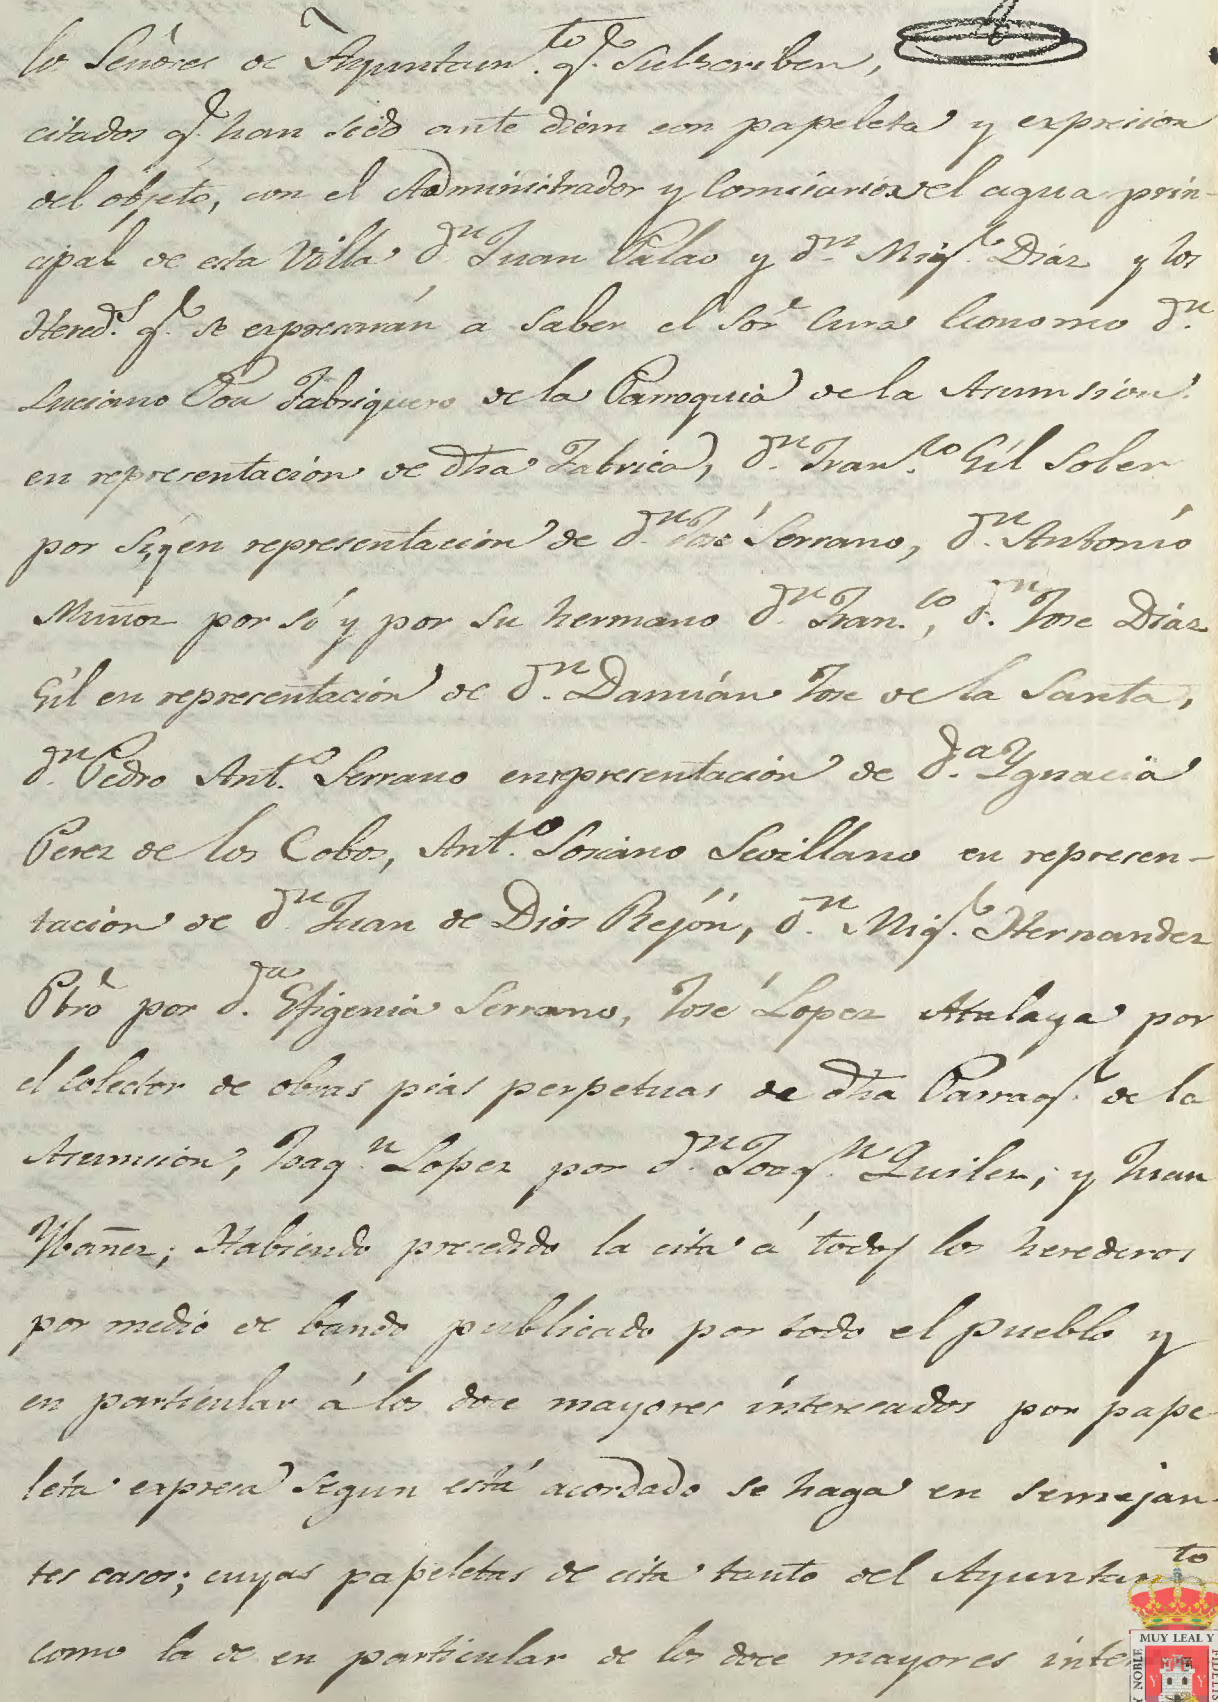 los Señores de Ayuntam.to q.e Subscriben,
citados q.e han sido ante diem con papeleta y expresion
del objeto, con el Administrador y Comisario del agua prin-
cipal de esta Villa d.n Juan Palao y d.n Mig.l Diaz y los
Hered.s q.e se expresarán a saber el Sor. Cura Economo d.n
Luciano Pou Fabriquero de la Parroquia de la Asumsion
en representacion de dha Fabrica, d.n Fran.co Gil Soler
por si, y en representacion de d.n José Serrano, d.n Antonio
Muñoz por si y por su hermano d.n Fran.co, d.n Jose Diaz
Gil en representación de d.n Damián Jose de la Santa,
d.n Pedro Ant.o Serrano en representación de d.a Ygnacia
Perez de los Cobos, Ant.o Soriano Sevillano en represen-
tación de d.n Juan de Dios Rejón, d.n Mig.l Hernandez
Pbro por d.a Efigenia Serrano, José Lopez Atalaya por
el Colector de obras pias perpetuas de dha Parroq.a de la
Asumsion, Joaq.n Lopez por d.n Joaq.n Quilez; y Juan
Ybañez; Habiendo precedido la cita á todos los herederos
por medio de bando publicado por todo el pueblo y
en particular á los doce mayores interesados por pape
leta expresa segun está acordado se haga en semejan
tes casos; cuyas papeletas de cita tanto del Ayuntam.to
como la de en particular de los doce mayores inte
MUY LEAL Y
NOBLE